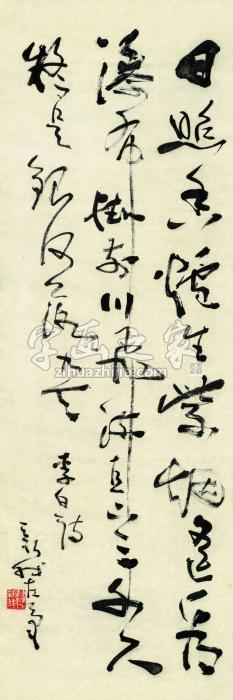 日照香爐生紫烟遙看
瀑布掛前川飛流直下三千尺
疑是銀河落九天
李白詩
字画之家
zihuazhijia.com